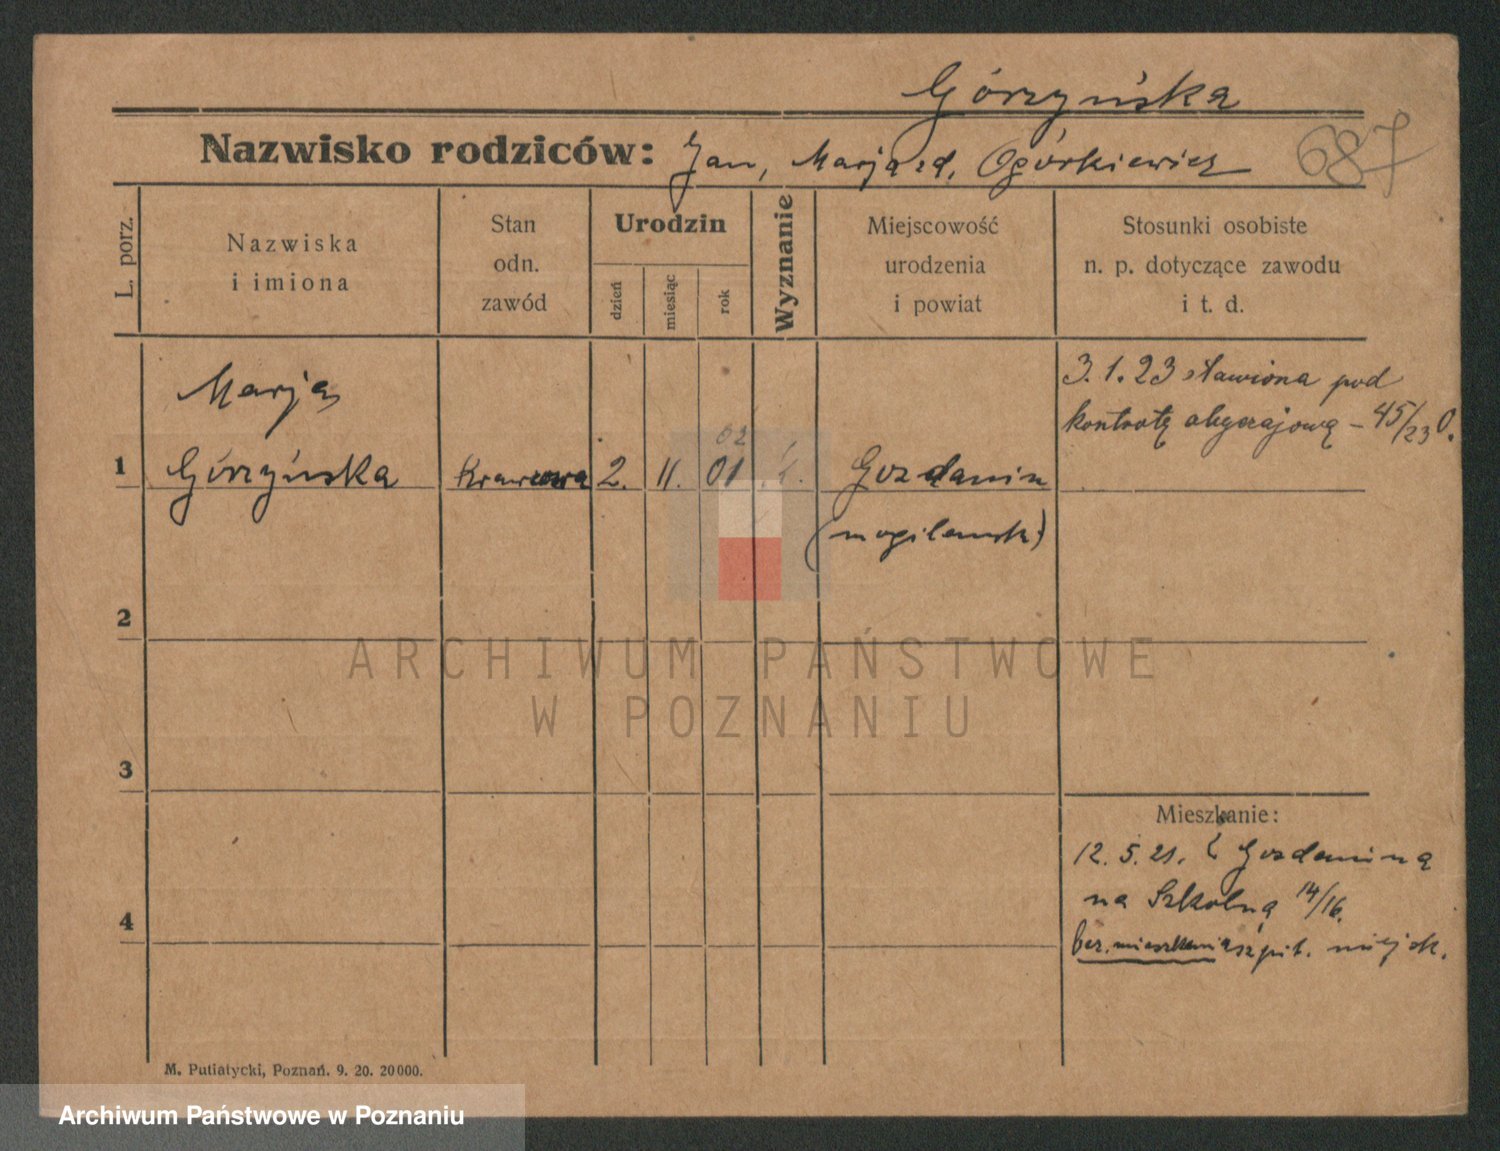 Górzyńska
Nazwisko rodziców: Jan, Marja zd. Ogórkiewicz
687
L. porz.
Nazwiska
i imiona
Stan
odn.
zawód
Urodzin
dzień
miesiąc
rok
Wyznanie
Miejscowość
urodzenia
i powiat
Stosunki osobiste
n. p. dotyczące zawodu
i t. d.
3. 1. 23 stawiona pod
kontrolę obyczajową – 45/23 O.
Marja
02
1 Górzyńska Krawcowa 2. 11. 01 Gozdanin
(mogilensk.)
2
ARCHIWUM PAŃSTWOWE
W POZNANIU
3
Mieszkanie:
12. 5. 21. z Gozdanina
na Szkolną 14/16.
4
bez. mieszkania szpit. miejsk.
M. Putiatycki, Poznań. 9. 20. 20000.
Archiwum Państwowe w Poznaniu